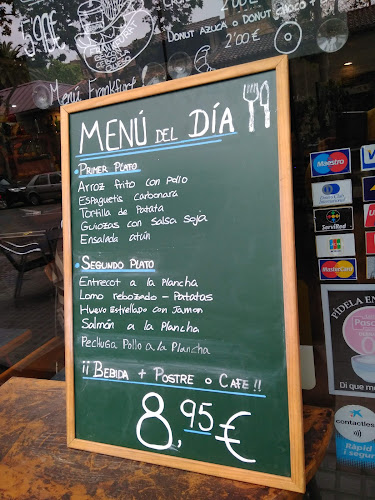 5'90€
DONUT AZUCA O DONUT CHOCO +
2'00€
MENÚ Frankfurt
MENÚ DEL DÍA
PRIMER PLATO
ARROZ FRITO CON POLLO
ESPAGUETIS CARBONARA
TORTILLA DE PATATA
GUIOZAS CON SALSA SOJA
ENSALADA ATÚN
SEGUNDO PLATO
ENTRECOT A LA PLANCHA
LOMO REBOZADO - PATATAS
HUEVO ESTRELLADO CON JAMON
SALMÓN A LA PLANCHA
PECHUGA POLLO A LA PLANCHA
¡¡ BEBIDA + POSTRE O CAFE !!
8,95€
MAESTRO
Diners Club
International
ServiRed
JCB
MasterCard
PÍDELA EN
O que di
contactless
Ràpid
i segur